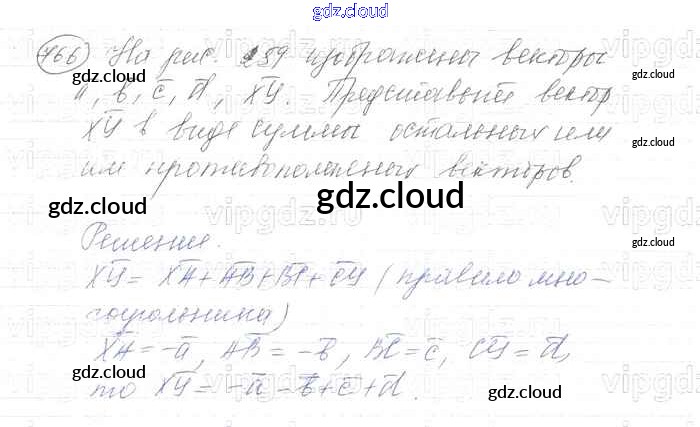 gdz.cloud
766) На рис. 259 изображены векторы
gdz.cloud gdz.cloud
a̅, b̅, c̅, d̅, X̅Y̅. Представьте вектор
X̅Y̅ в виде суммы остальных или
им противоположных векторов.
gdz.cloud gdz.cloud gdz.cloud
Решение.
gdz.cloud
X̅Y̅ = X̅A̅ + A̅B̅ + B̅C̅ + C̅Y̅ (правило мно-
гоугольника)
X̅A̅ = -a̅, A̅B̅ = -b̅, B̅C̅ = c̅, C̅Y̅ = d̅,
gdz.cloud gdz.cloud
то X̅Y̅ = -a̅ - b̅ + c̅ + d̅.
gdz.cloud